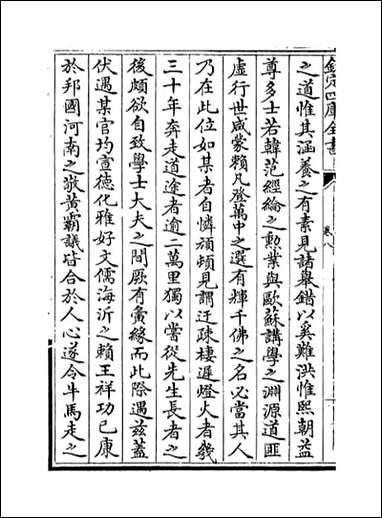 欽定四庫全書
卷八
之道惟其涵養之有素見諸舉錯以奚難洪惟熙朝益
尊多士若韓范經綸之勲業與歐蘇講學之淵源道匪
虛行世咸蒙賴凡登萬中之選有輝千佛之名必當其人
乃在此位如某者自憐頑頓見謂迂疎棲遲燈火者幾
三十年奔走道途者逾二萬里獨以嘗從先生長者之
後頗欲自致學士大夫之間厥有夤緣而此際遇兹蓋
伏遇某官均宣徳化雅好文儒海沂之賴王祥功已康
於邦國河南之敬黄霸議皆合於人心遂令牛馬走之